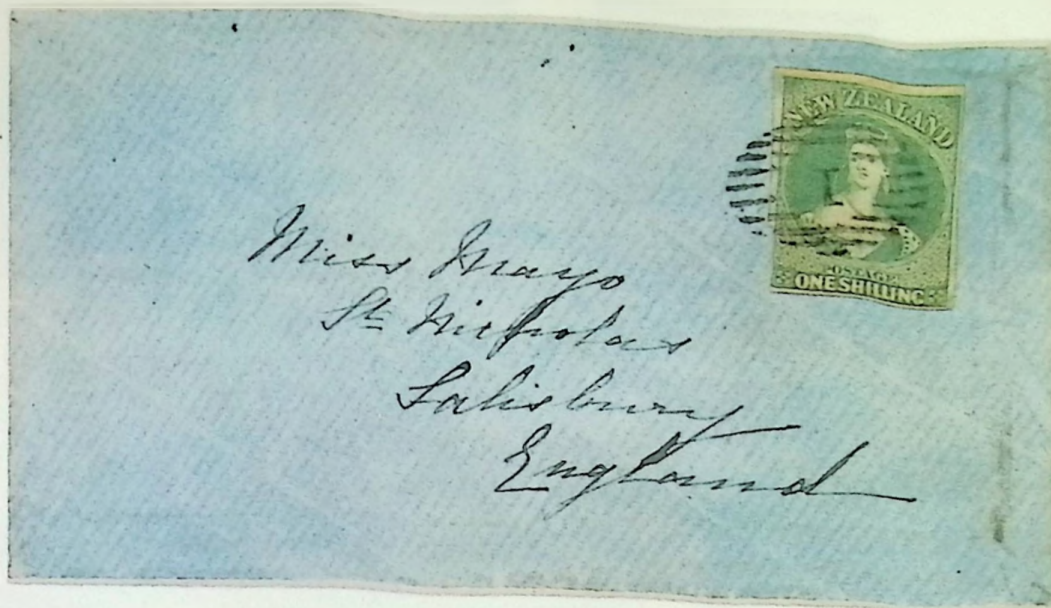 NEW ZEALAND
POSTAGE
ONE SHILLING
Miss Mayo
St Nicholas
Salisbury
England